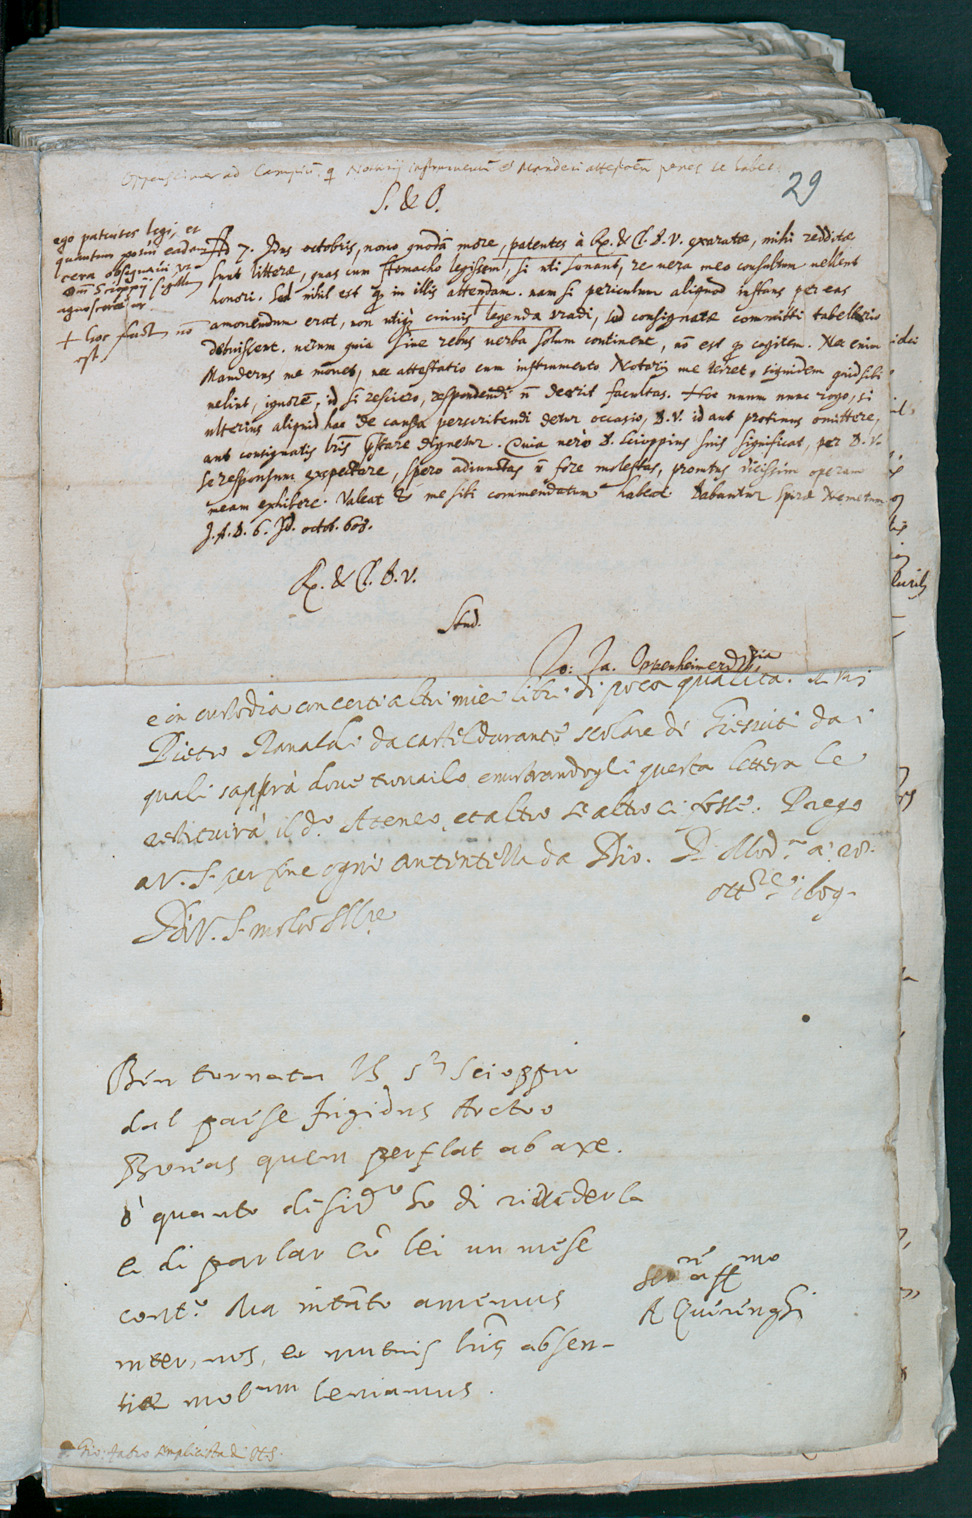 Oppenheimer ad Campium q Notarii instrumentum & Manderi penes se habet
29
S. & O.
ego patentes legi, et
quantum possum eadem
cera obsignavi
Dni Scioppii sigillum
+ hoc factum no
est
Ad 7. Idus octobris, novo quodam more, patentes à R. & Cl. D. V. exaratae, mihi redditae
sunt litterae, quas cum stomacho legissem, si uti sonant, re vera meo consultum vellent
honori. Sed nihil est qd in illis attendam. nam si periculum aliquod instans per eas
amovendum erat, non utiq civivis legenda tradi, sed consignatae committi tabellario
debuissent. verum quia sine rebus verba solum continent, nō est qd cogitem. Nec enim
Manderus me movet, nec attestatio cum instrumento Notarii me terret, siquidem quid sibi
velint, ignorē, id si resciero, respondendi ñ deerit facultas. Hoc unum nunc rogo, si
ulterius aliquid hac de causa perscribendi detur occasio, D. V. id aut protinus omittere,
aut consignatis lris pstare dignetur. Quia vero D. Scioppius suis significat, per D. V.
se responsum expectare, spero adiunctas ñ fore molestas, promtus vicissim operam
meam exhibere. Valeat & me sibi commendatum habeat. Dabantur Spirae Nemetum
J. A. D. 6. Id. octob. 608.
R. & Cl. D. V.
Stud.
Jo: Ja. Oppenheimerd
e in custodia con certi altri miei libri di poca qualita.
Pietro Ranaldi da casteldurante scolare de Giesuiti da i
quali sapprà dove trovailo emostrandogli questa lettera le
restituirà il do Ateneo, et altro se altro ci fosse. Prego
a V. S. per fine ogni da Dio. Di Mod.na a' 28.
ott.re 1609.
Di V. S. molto Ill.re
Ben tornato Il S.r Scioppio
dal paese frigidus Arctoo
Boreas quem perflat ab axe.
ò quanto disid.o ho di rivederla
e di parlar cō lei un mese
cont.o Ma intāto amemus
inter, nos, et mutuis lris absen-
tiae molestiam leniamus.
ser.re aff.mo
A Querenghi
Gio: Antonio